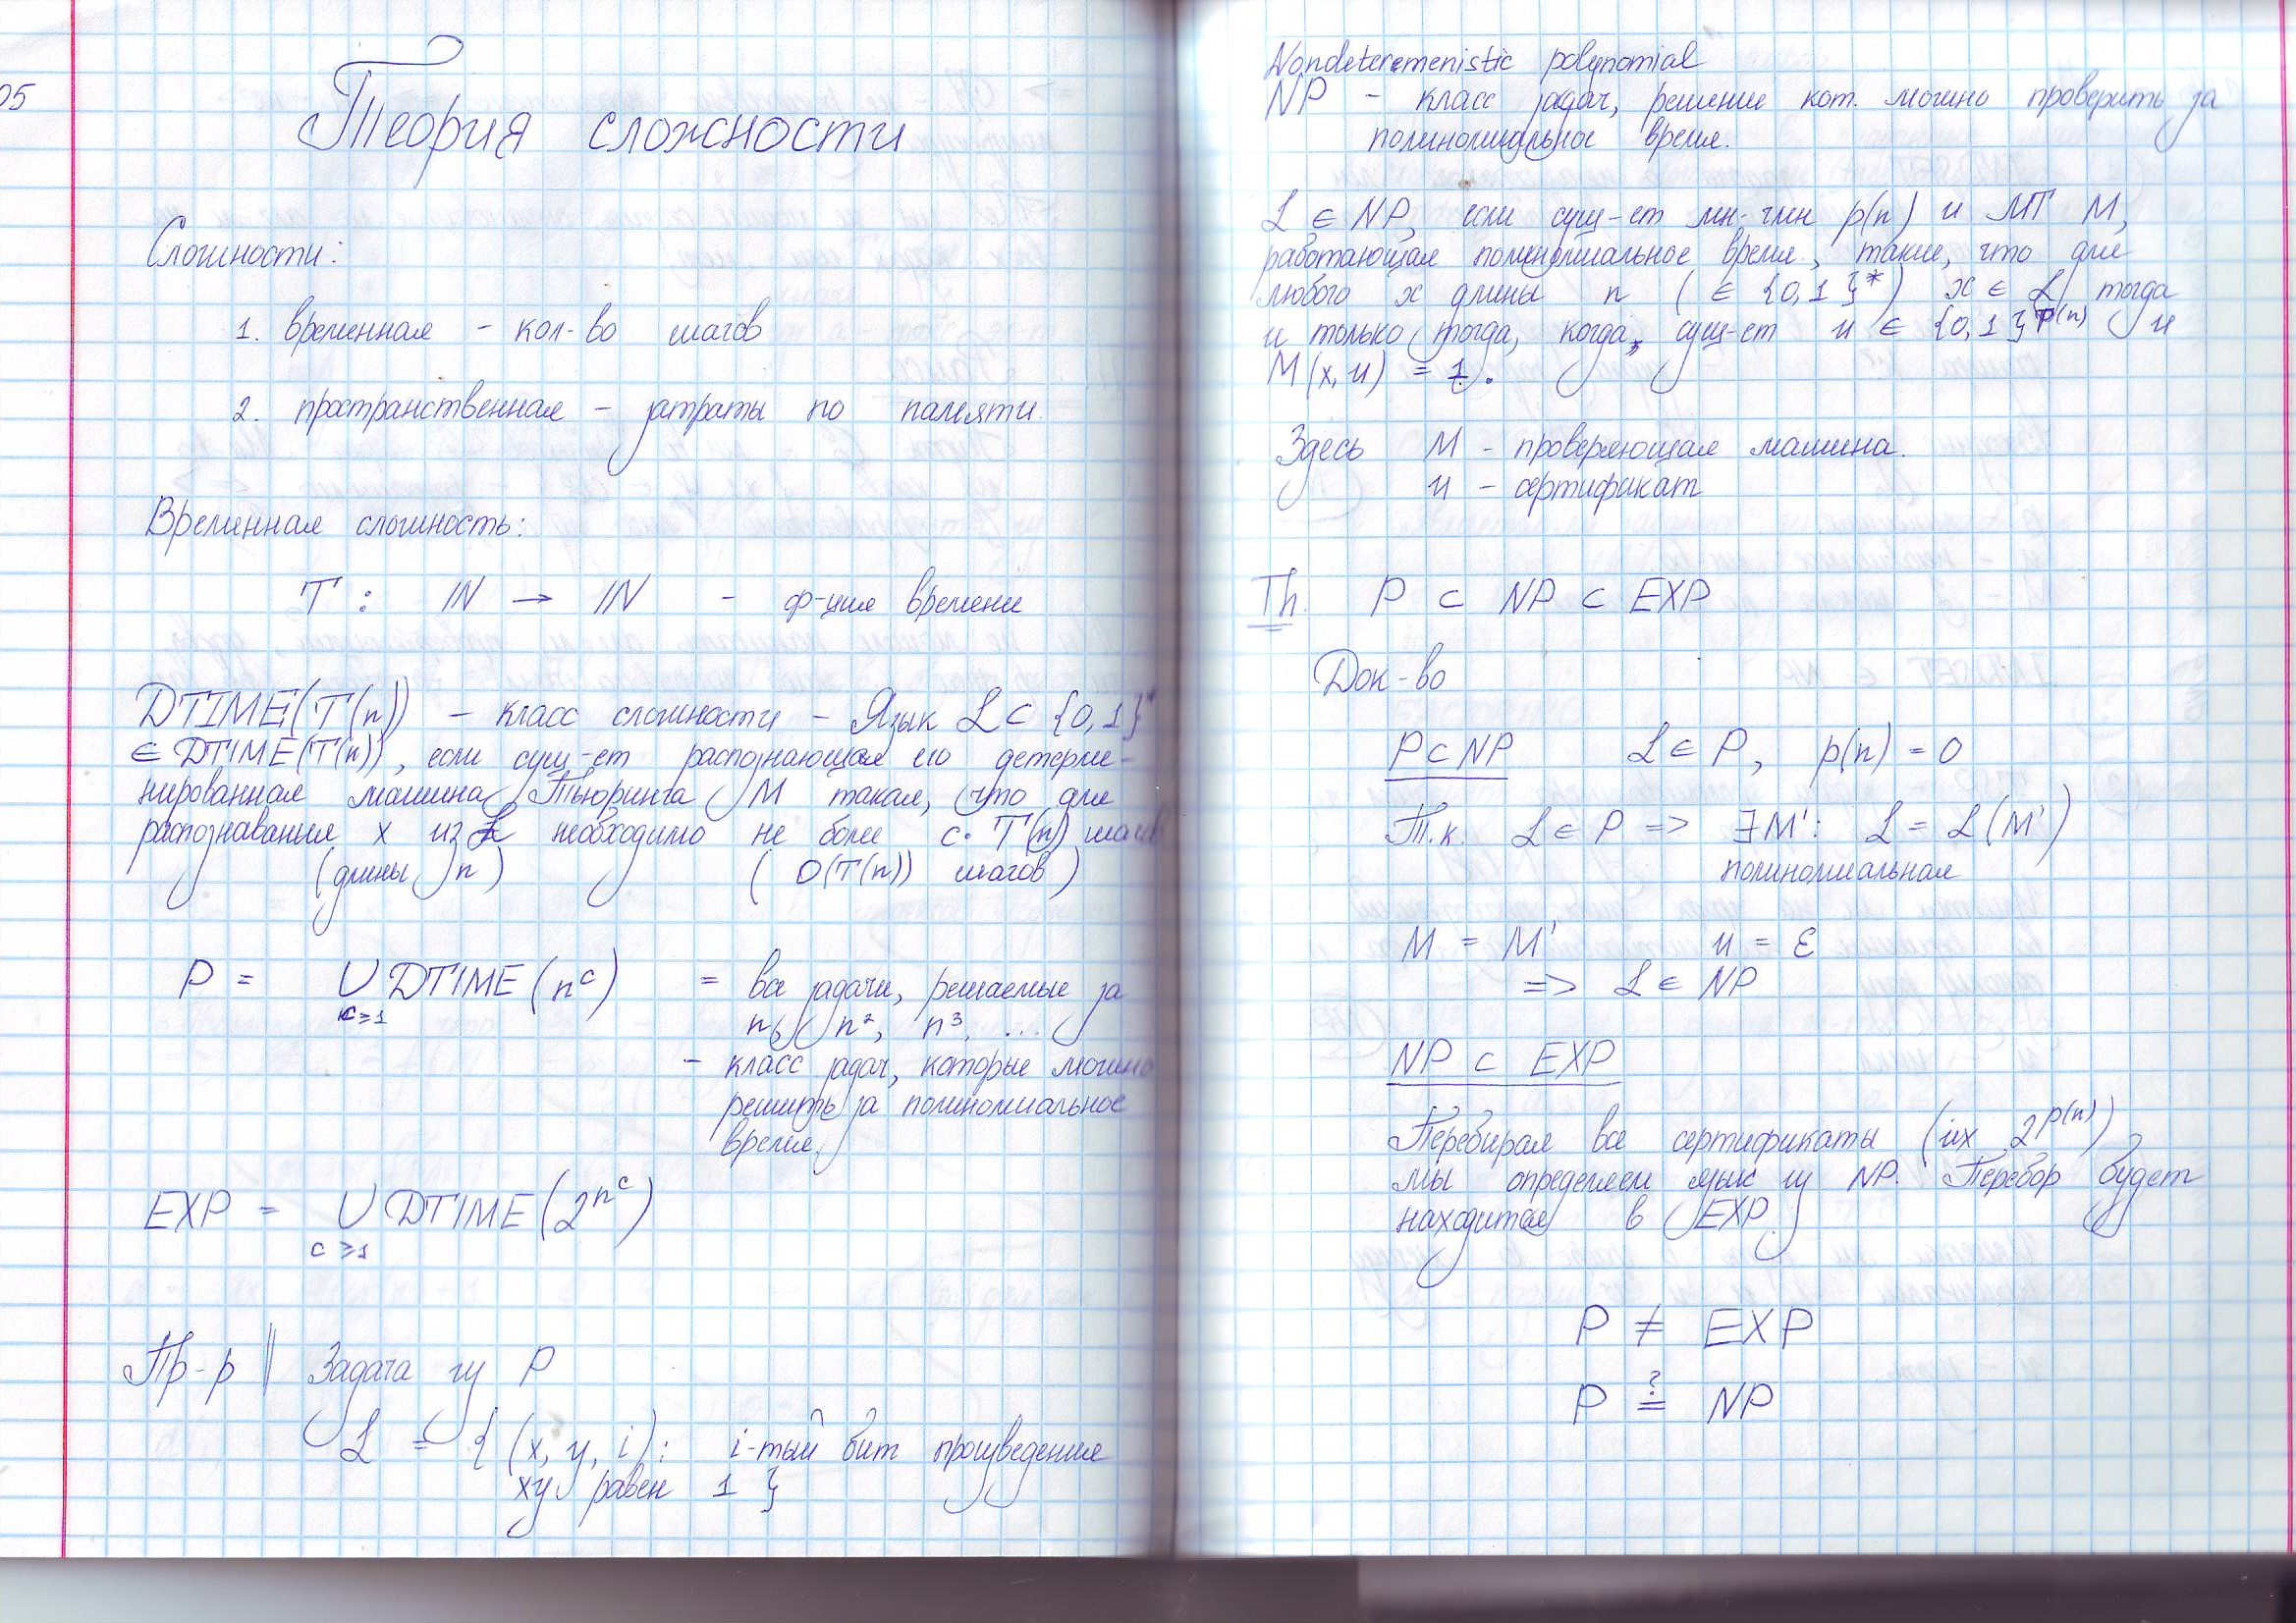 05
Теория сложности
Сложности:
1. временная - кол-во шагов
2. пространственная - затраты по памяти.
Временная сложность:
T : ℕ → ℕ - ф-ция времени
DTIME(T(n)) - класс сложности - Язык L ⊂ {0,1}*
∈ DTIME(T(n)), если сущ-ет распознающая его детерми-
нированная машина Тьюринга M такая, что для
распознавания x из L необходимо не более c· T(n) шагов
(длины n) ( O(T(n)) шагов )
P = ∪ DTIME(n^c) = все задачи, решаемые за
c≥1 n, n², n³, ...
- класс задач, которые можно
решить за полиномиальное
время.
EXP = ∪ DTIME(2^n^c)
c ≥1
Пр-р || Задача из P
L = { (x, y, i): i-тый бит произведения
xy равен 1 }
Nondeteremenistic polynomial
NP - класс задач, решение кот. можно проверить за
полиномиальное время.
L ∈ NP, если сущ-ет мн-член p(n) и МТ M,
работающая полиномиальное время, такие, что для
любого x длины n ( ∈ {0,1}*) x ∈ L тогда
и только тогда, когда, сущ-ет u ∈ {0,1}^p(n) и
M(x,u) = 1.
Здесь M - проверяющая машина.
u - сертификат
Th. P ⊂ NP ⊂ EXP
Док-во
P⊂NP L∈P, p(n) = 0
Т.к. L ∈ P => ∃M': L = L(M')
полиномиальная
M = M' u = ε
=> L ∈ NP
NP ⊂ EXP
Перебирая все сертификаты (их 2^p(n))
мы определяем язык из NP. Перебор будет
находится в EXP.
P ≠ EXP
P ≟ NP